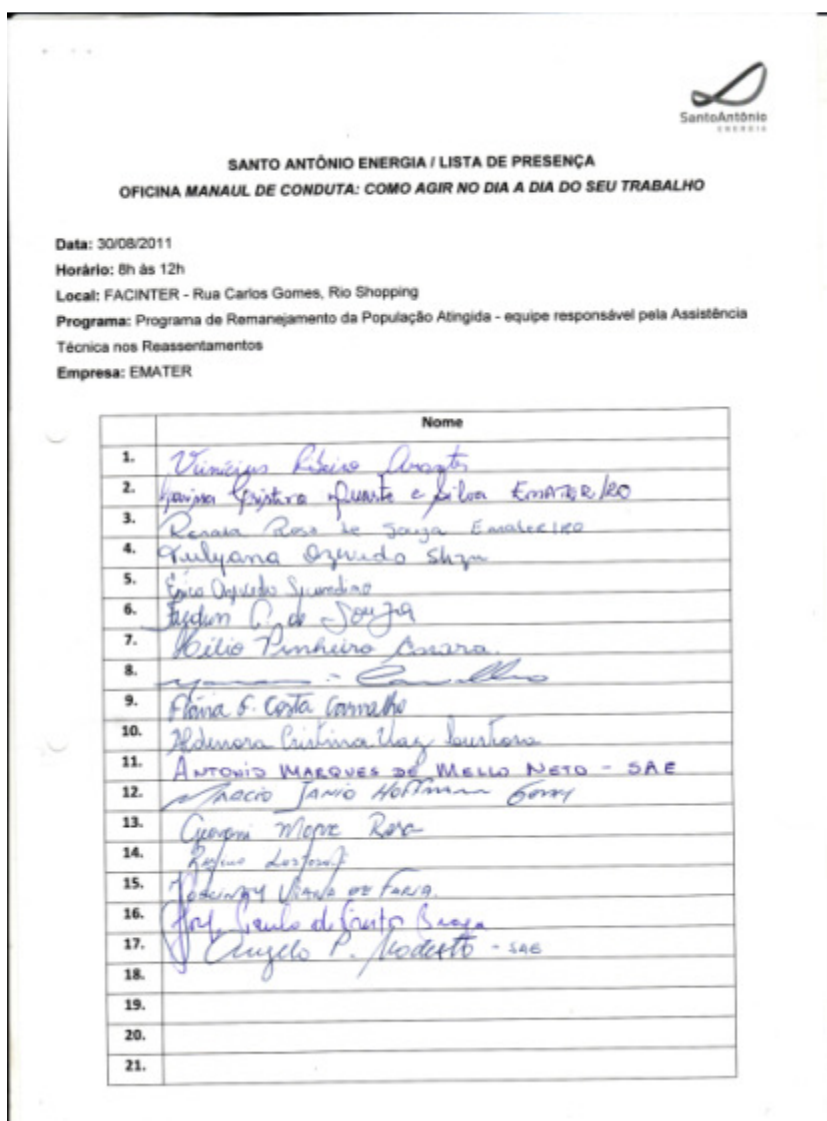 SantoAntônio
ENERGIA
SANTO ANTÔNIO ENERGIA / LISTA DE PRESENÇA
OFICINA MANAUL DE CONDUTA: COMO AGIR NO DIA A DIA DO SEU TRABALHO
Data: 30/08/2011
Horário: 8h às 12h
Local: FACINTER - Rua Carlos Gomes, Rio Shopping
Programa: Programa de Remanejamento da População Atingida - equipe responsável pela Assistência
Técnica nos Reassentamentos
Empresa: EMATER
Nome
1. Vinicius Ribeiro Arantes
2. Cristina Duarte e Silva EMATER/RO
3. Renata Rosa de Souza Emater/RO
4. Azevedo
5. Érico Azevedo
6. C. de Souza
7. Hélio Pinheiro
8. Carvalho
9. Flávia F. Costa Carvalho
10. Aldenora Cristina Vaz
11. ANTONIO MARQUES DE MELLO NETO - SAE
12. MARCIO JANIO HOFFMANN
13. Giovani
14.
15. VIANA DE FARIA.
16. Paulo Braga
17. Angelo P. Modesto - SAE
18.
19.
20.
21.